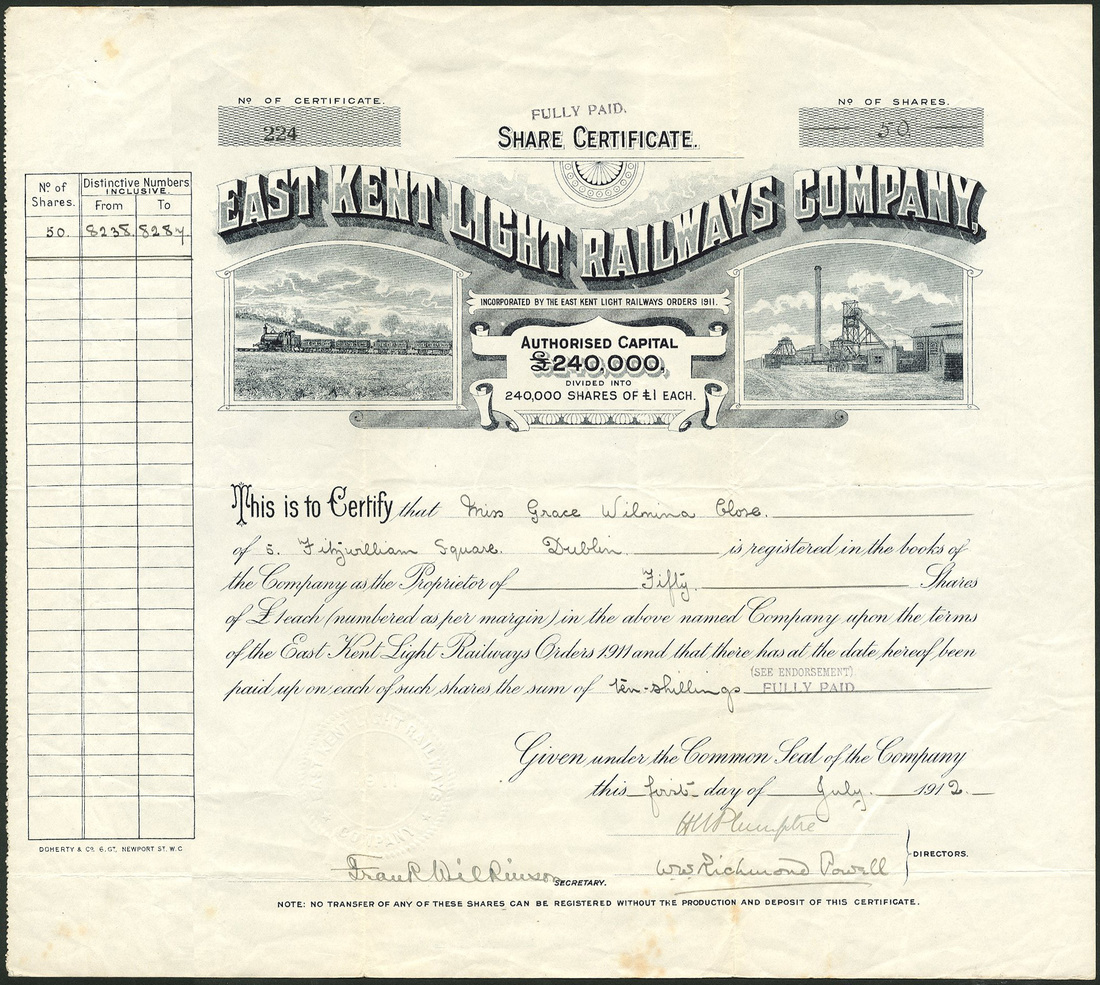 Nº OF CERTIFICATE.
224
FULLY PAID.
SHARE CERTIFICATE.
Nº OF SHARES.
50
EAST KENT LIGHT RAILWAYS COMPANY,
INCORPORATED BY THE EAST KENT LIGHT RAILWAYS ORDERS 1911.
AUTHORISED CAPITAL
£240,000,
DIVIDED INTO
240,000 SHARES OF £1 EACH.
Nº of Shares.
Distinctive Numbers
INCLUSIVE.
From To
50. 8238 8287
This is to Certify that Miss Grace Wilmina Close.
of 5. Fitzwilliam Square. Dublin. is registered in the books of
the Company as the Proprietor of Fifty. Shares
of £1 each (numbered as per margin) in the above named Company upon the terms
of the East Kent Light Railways Orders 1911 and that there has at the date hereof been
(SEE ENDORSEMENT)
paid up on each of such shares the sum of ten-shillings FULLY PAID
EAST KENT LIGHT RAILWAYS COMPANY
Given under the Common Seal of the Company
this first day of July. 1912.
H W Plumptre
DIRECTORS.
Frank Wilkinson SECRETARY. WW Richmond Powell
DOHERTY & Cº 6. Gt. NEWPORT ST. W.C
NOTE: NO TRANSFER OF ANY OF THESE SHARES CAN BE REGISTERED WITHOUT THE PRODUCTION AND DEPOSIT OF THIS CERTIFICATE.